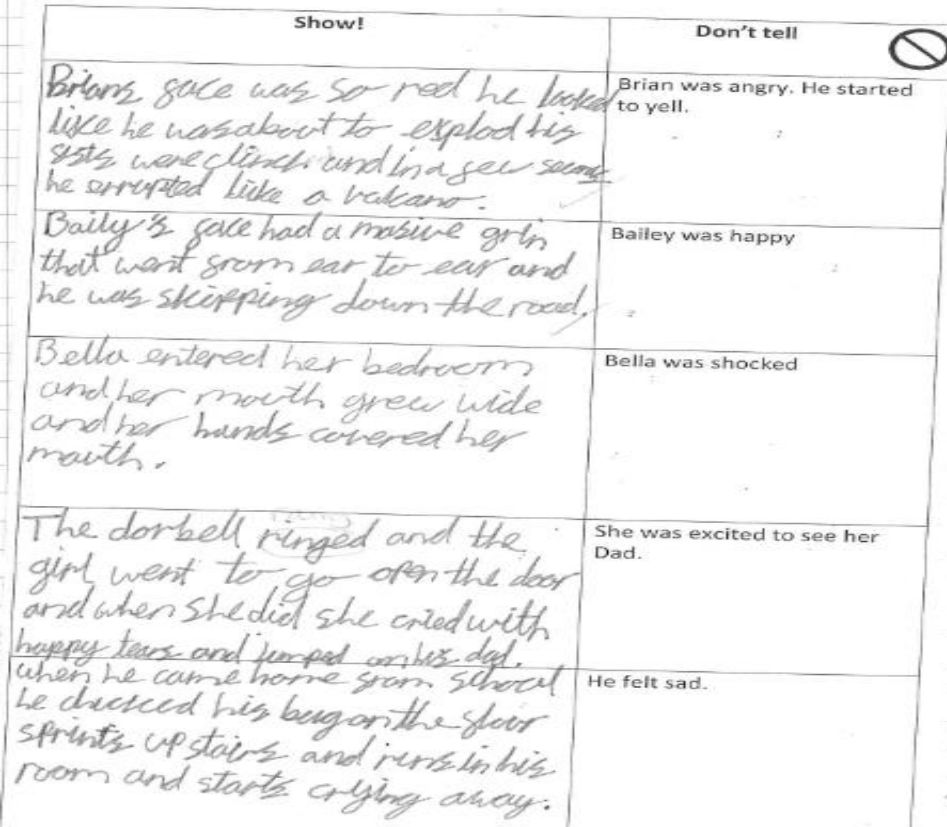 Show!
Don't tell
Brians face was so red he looked
like he was about to explod his
fists were clinch and in a few seconds
he errupted like a valcano.
Brian was angry. He started
to yell.
Baily's face had a masive grin
that went from ear to ear and
he was skipping down the road.
Bailey was happy
Bella entered her bedroom
and her mouth grew wide
and her hands covered her
mouth.
Bella was shocked
The dorbell ringed and the
girl went to go open the door
and when she did she cried with
happy tears and jumped on his dad.
She was excited to see her
Dad.
when he came home from school
he chucked his bag on the floor
sprints up stairs and runs in his
room and starts crying away.
He felt sad.